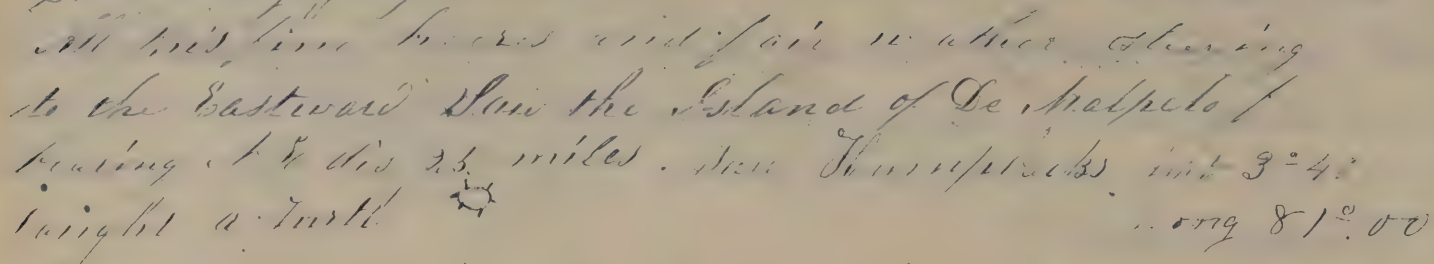 All this time breezes and fair weather steering
to the Eastward Saw the Island of De Malpelo
bearing N E dis 25 miles. saw Humpbacks Lat 3°-4
Caught a Turtle Long 81°.00